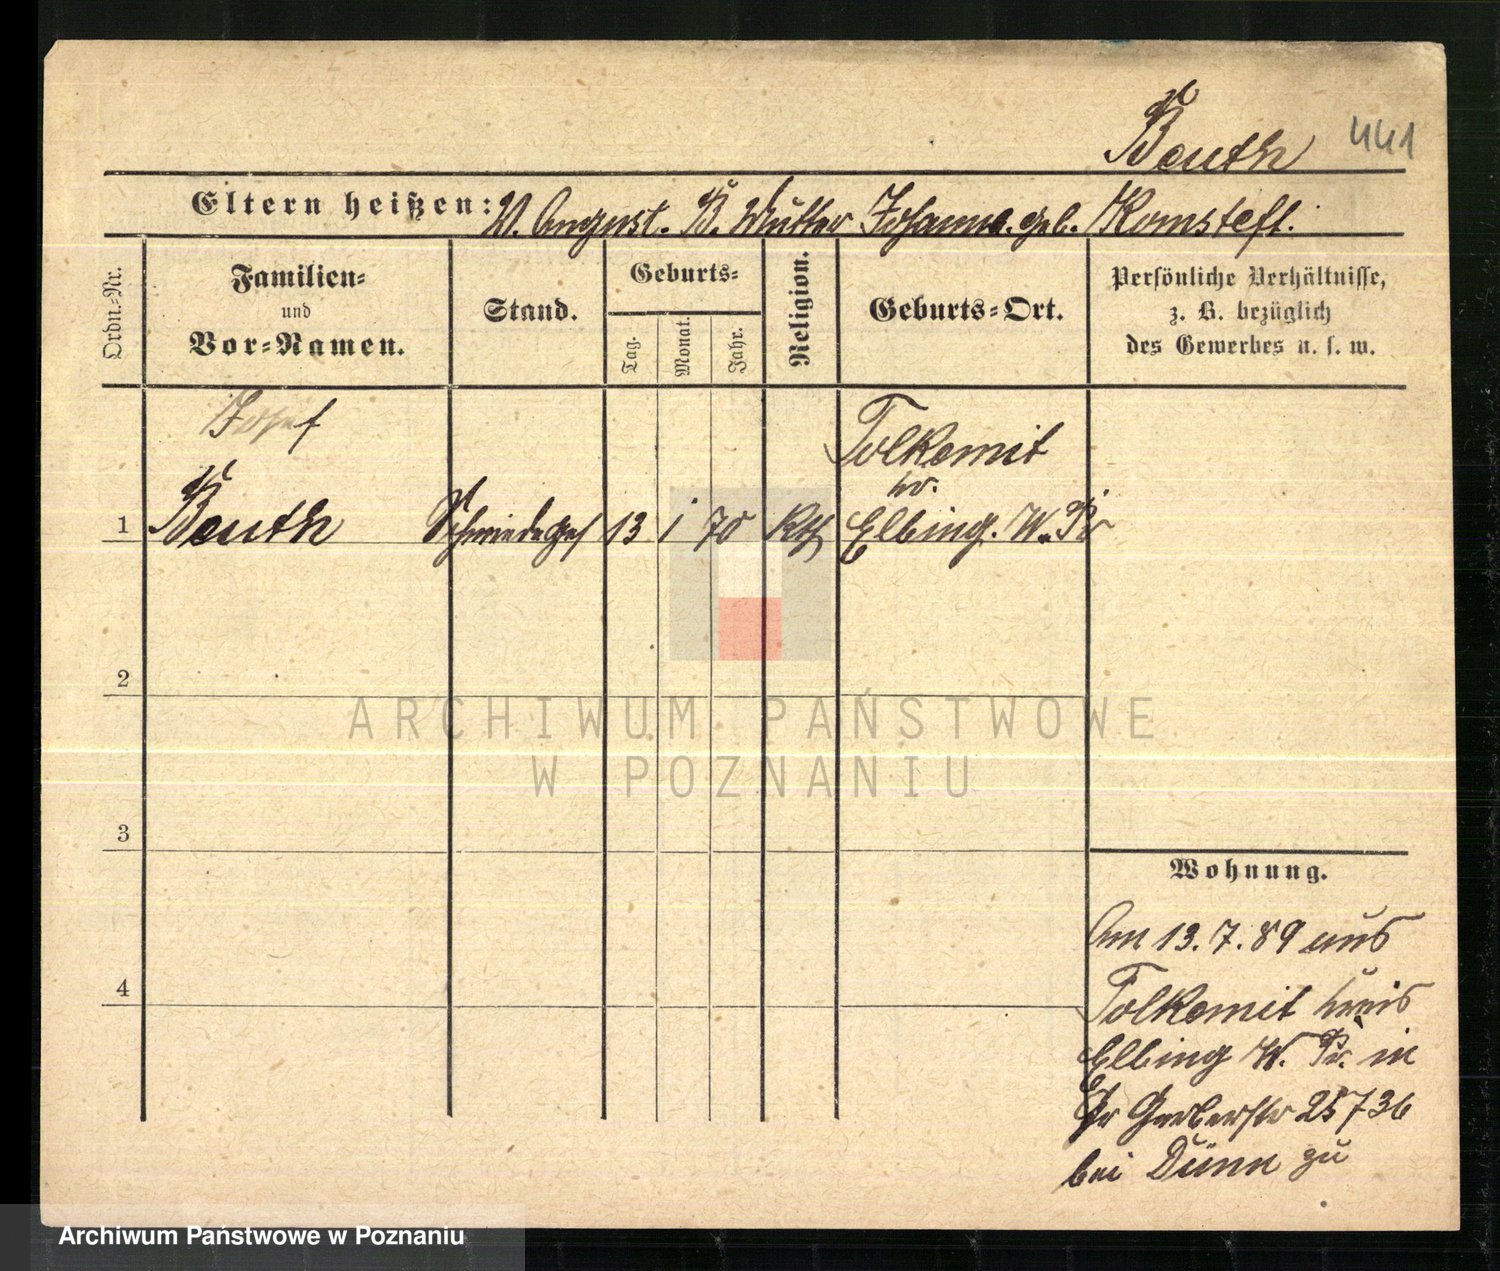 Beuth 441
Eltern heißen: V. August. B. Mutter Johanna. geb.
Ordn.-Nr.
Familien-
und
Vor-Namen.
Stand.
Geburts-
Tag.
Monat.
Jahr.
Religion.
Geburts-Ort.
Persönliche Verhältnisse,
z. B. bezüglich
des Gewerbes u. s. w.
Josef
Tolkemit
1 Beuth Schmiedeges 13 1 70 Kth Elbing. W. Pr
2
3
4
Wohnung.
Am 13.7.89 aus
Tolkemit Kreis
Elbing W. Pr. in
Gr Gerberstr
bei Dünn zu
ARCHIWUM PAŃSTWOWE
W POZNANIU
Archiwum Państwowe w Poznaniu